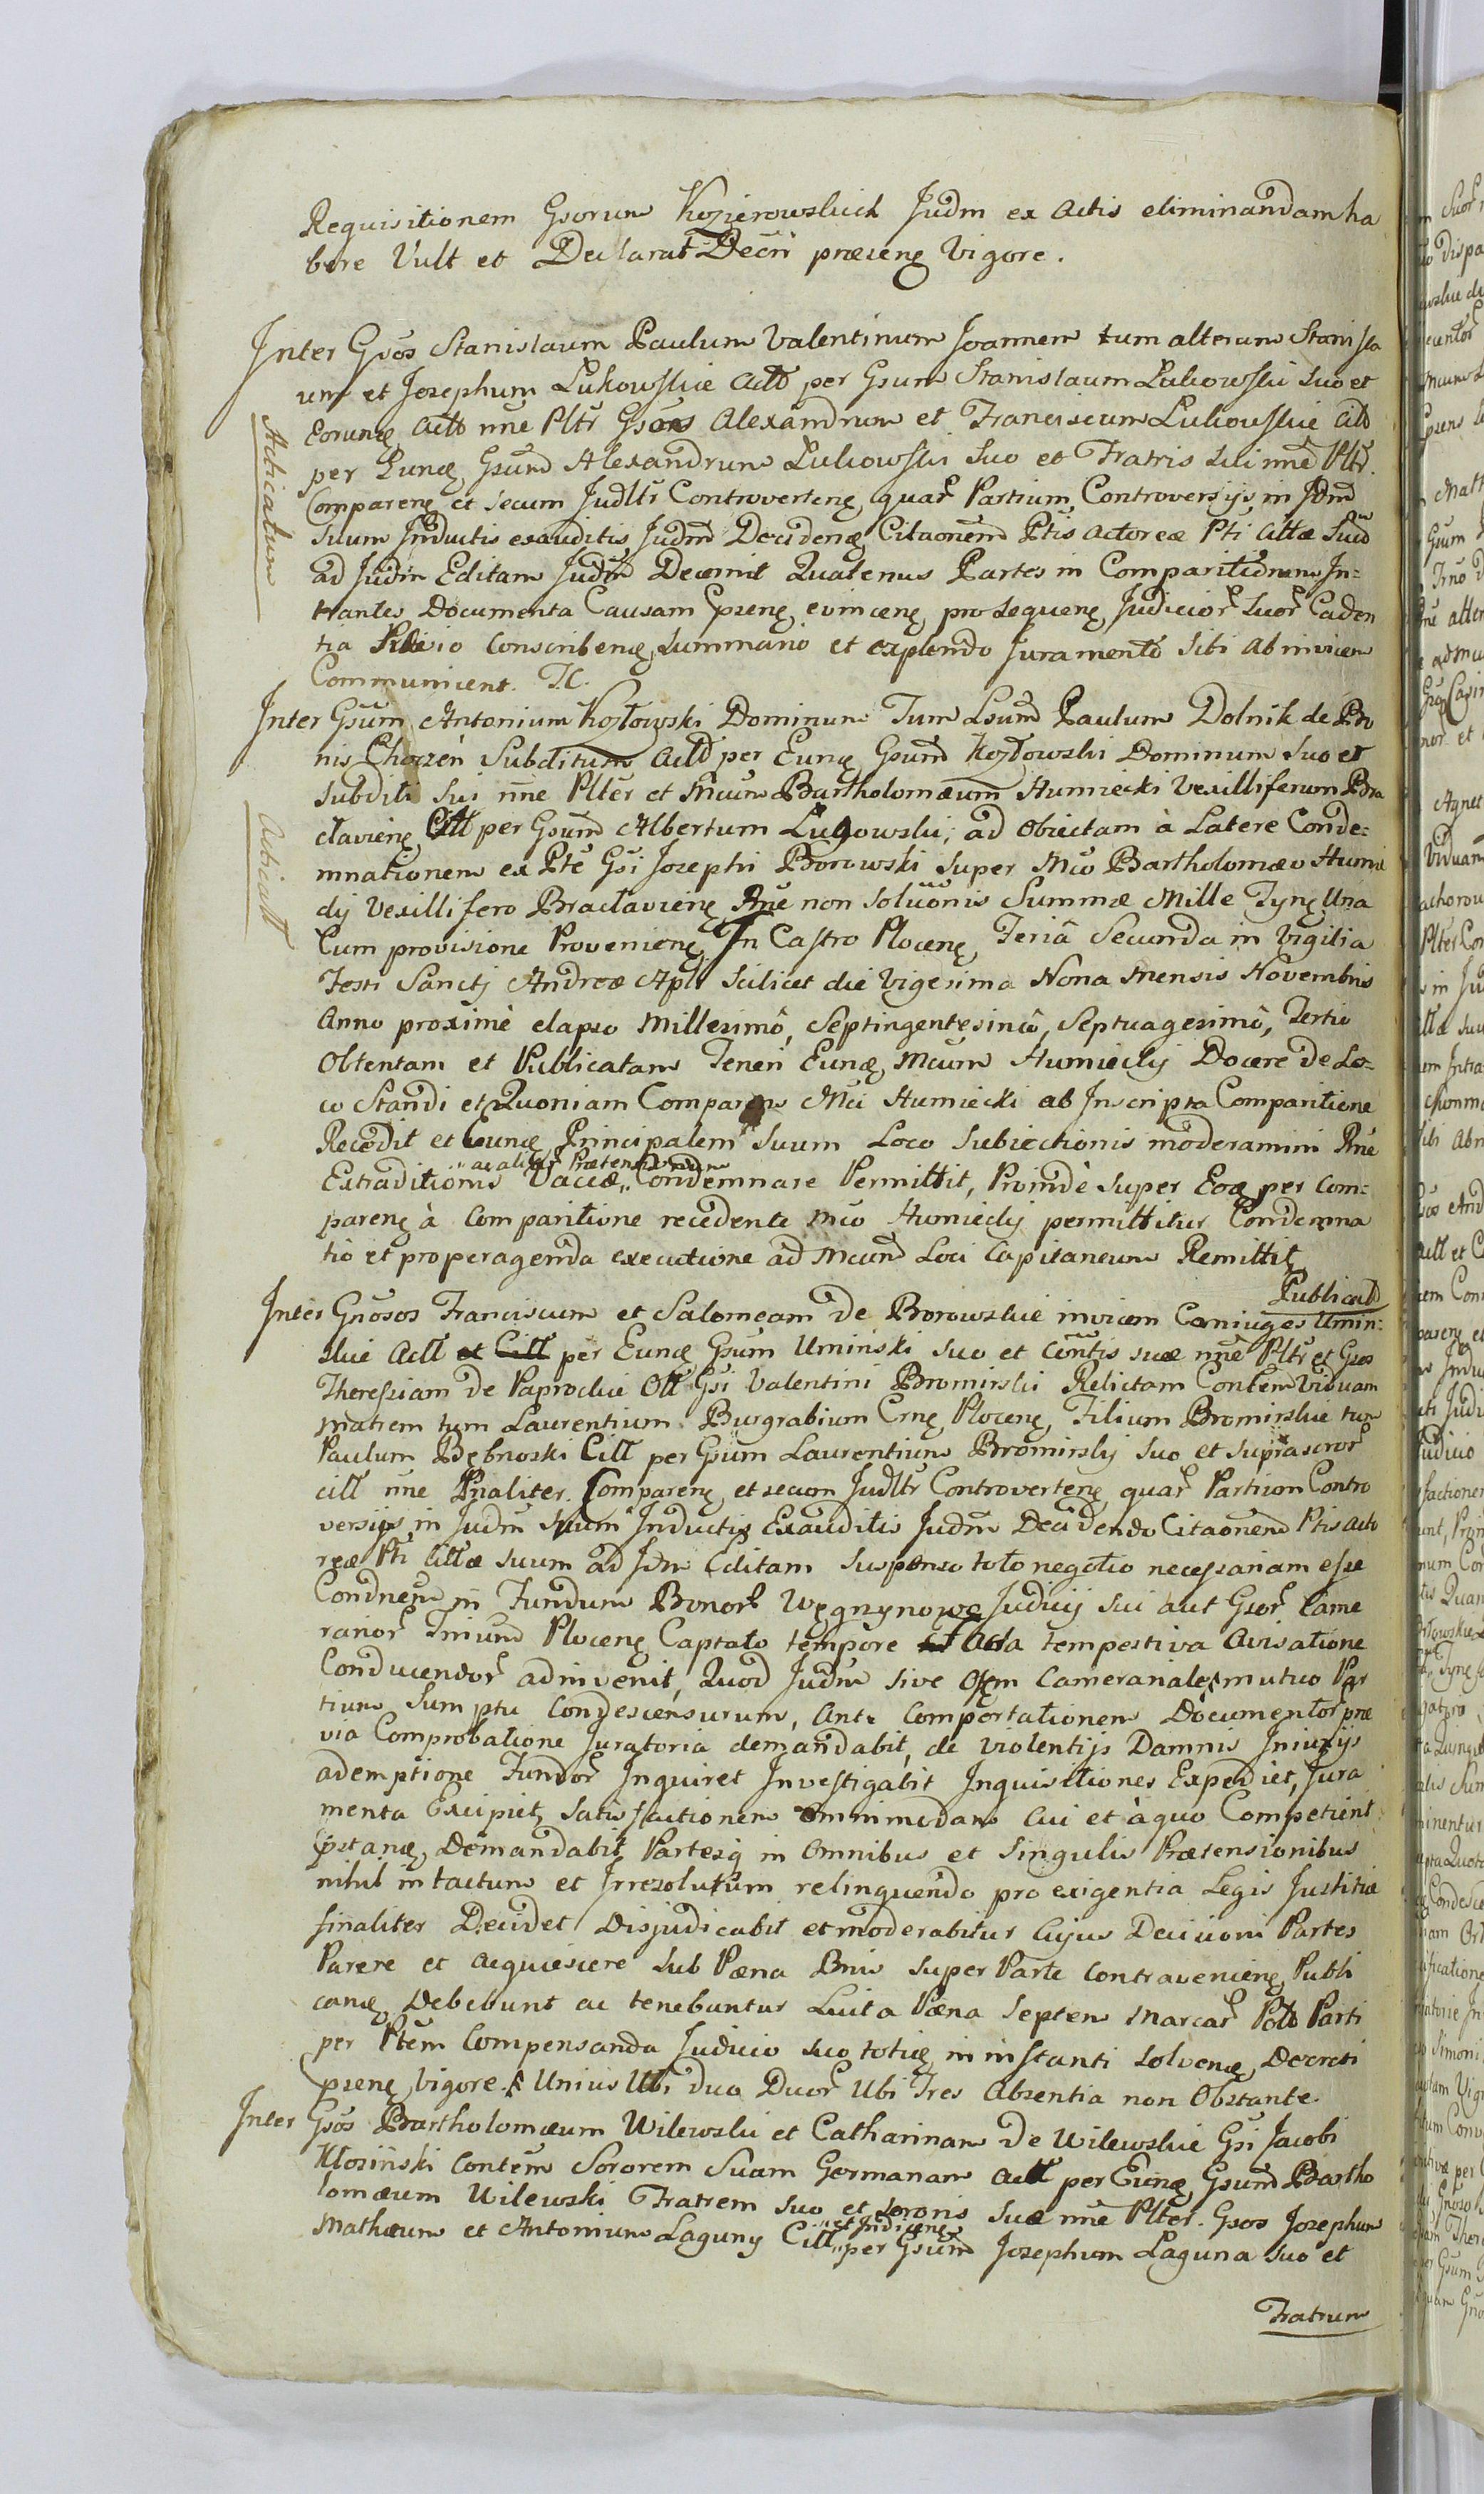 Requisitionem Gsorum Kozierowskich Judm ex Actis eliminandam ha
bere Vult et Declarat Decri præsenę Vigore.
Inter Gsos Stanislaum Paulum Valentinum Joannem tum alterum Stanisla
um et Josephum Lukowskie Actt per Gsum Stanislaum Lukowski suo et
Eorumę Actt nne Pltr Gsos Alexandrum et Franciscum Lukowskie
per Eunę Gsum Alexandrum Lukowski Suo et Fratris sui nne Pltr.
Comparenę et secum Judltr Controvertenę quar Partium Controversijs in Jdm
Suum Inductis exauditis Judm Decidenę Citaonem Ptis Actoreæ Pti Cittæ Suum
ad Judm Editam Judm Decernit Quatenus Partes in Comparitionem In=
trantes Documenta Causam Cprenę evincenę prosequenę Judicior Suor Caden
tia conscribenę Summario et explendo Juramento sibi ab invicem
Communicent. TC.
Acticatum
Inter Gsum Antonium Kozłowski Dominum Tum Lsum Paulum Dolnik de Bo
nis Choczeń Subditum Actt per Eunę Gsum Kozłowski Dominum Suo et
Subditi Sui nne Plter et Mcum Bartholomæum Humiecki Vexilliferum Bra
clavienę Citt per Gsum Albertum Lugowski, ad Obiectam à Latere Conde=
mnationem ex Pte Gsi Josephi Borowski super Mco Bartholomæo Humie
cki Vexillifero Braclavienę Rne non Soluonis Summæ Mille Tynę Una
Cum provisione Provenienę In Castro Plocenę Feriâ Secunda in Vigilia
Festi Sancti Andreæ Apli Scilicet die Vigesima Nona Mensis Novembris
Anno proximè elapso Millesimô, Septingentesimô, Septuagesimô, Tertio
Obtentam et Publicatam Teneri Eunę Mcum Humiecki Docere de Lo=
co Standi et Quoniam Comparens Mci Humiecki ab Inscripta Comparitione
Recedit et Eunę Principalem Suum Loco Subiectionis moderamini Rne
ac aliar Prætensionum
Extraditionis Vaccæ Condemnare Permittit, Proindè super Eoę per Com=
parenę à Comparitione recedente Mco Humiecki permittitur Condemna
tio et pro peragenda executione ad Mcum Loci Capitaneum Remittit
Acticatt
Publicatt
Inter Gnosos Franciscum et Salomeam de Borowskie invicem Coniuges Umin=
skie Actt et Citt per Eunę Gsum Uminski suo et Contis suæ nne Pltr et Gsos
Theressiam de Paprockie Olt Gsi Valentini Bromirski Relictam Contem Viduam
Matrem tum Laurentium Burgrabium Crnę Plocenę Filium Bromirskie tum
Paulum Bębnoski Citt per Gsum Laurentium Bromirski suo et suprascror
citt nne Pnaliter. Comparenę et secum Judltr Controvertenę quar Partium Contro
versijs in Judm Suum Inductis Exauditis Judm Decidendo Citaonem Ptis Acto
reæ Pti Cittæ Suum ad Jdm Editam Suspenso toto negotio necessariam esse
Condnem in Fundum Bonor Węgrzynowo Judicij sui aut Gsor Came
rarior Plocenę Captato tempore Acta tempestiva Avisatione
Conducendor adinvenit, Quod Judm sive Offm Cameraniale mutuo Par
tium Sumptu Condescensurum, Ante Comportationem Documentor præ
via Comprobatione Juratoria demandabit, de violentijs Damnis Iniurijs
ademptione Fundor Inquiret Investigabit Inquisitiones Expediet, Jura
menta Excipiet, Satisfactionem omnimodam Cui et à quo Competient
pstanę Demandabit Partesq in Omnibus et Singulis Prætensionibus
nihil intactum et Irresolutum relinquendo pro exigentia Legis Justitiæ
finaliter Decidet Disjudicabit et moderabitur Cujus Decisioni Partes
Parere et acquiescere sub Pæna Bnis super Parte contravenienę Publi
canę Debebunt ac tenebuntur Luita Pæna Septem Marcar Polo Parti
per Ptem Compensanda Judicio suo totię in instanti Solvenę Decreti
psenę vigore. Unius Ubi duo Duor Ubi Tres Absentia non Obstante.
Inter Gsos Bartholomæum Wilewski et Catharinam de Wilewskie Gsi Jacobi
Kłosiński Contem Sororem Suam Germanam Actt per Eunę Gsum Bartho
lomæum Wilewski Fratrem suo et sororis Suæ nne Plter. Gsos Josephum
et Indicenę
Mathæum et Antonium Laguny Citt per Gsum Josephum Laguna Suo et
Fratrum